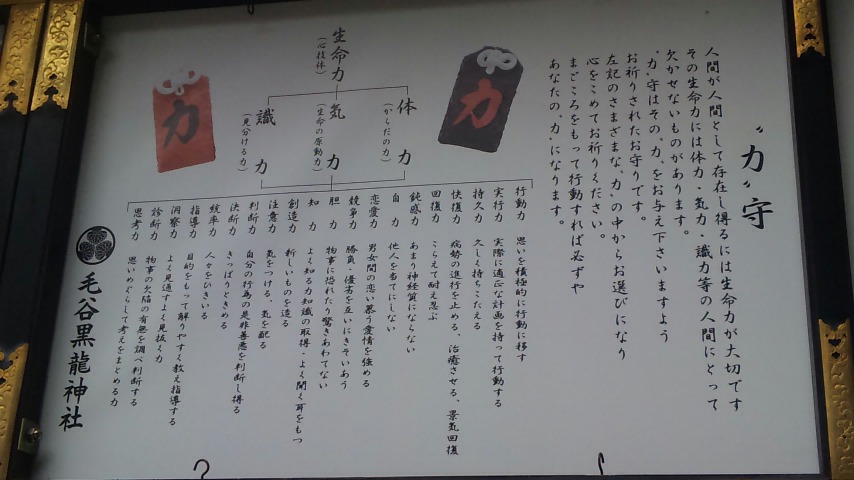 “力”守
人間が人間として存在し得るには生命力が大切です
その生命力には体力・気力・識力等の人間にとって
欠かせないものがあります。
“力”守はその“力”をお与え下さいますよう
お祈りされたお守りです。
左記のさまざまな“力”の中からお選びになり
心をこめてお祈りください。
まごころをもって行動すれば必ずや
あなたの“力”になります。
力
力
生命力
(心技体)
体力
(からだの力)
気力
(生命の原動力)
識力
(見分ける力)
行動力 思いを積極的に行動に移す
実行力 実際に適正な計画を持って行動する
持久力 久しく持ちこたえる
快復力 病勢の進行を止める、治癒させる、景気回復
回復力 こらえて耐え忍ぶ
鈍感力 あまり神経質にならない
自力 他人を当てにしない
恋愛力 男女間の恋い慕う愛情を強める
競争力 勝負・優劣を互いにきそいあう
胆力 物事に恐れたり驚きあわてない
知力 よく知る力知識の取得・よく聞く耳をもつ
創造力 新しいものを造る
注意力 気をつける、気を配る
判断力 自分の行為の是非善悪を判断し得る
決断力 きっぱりときめる
統率力 人々をひきいる
指導力 目的をもって解りやすく教え指導する
洞察力 よく見通すよく見抜く力
診断力 物事の欠陥の有無を調べ判断する
思考力 思いめぐらして考えをまとめる力
毛谷黒龍神社